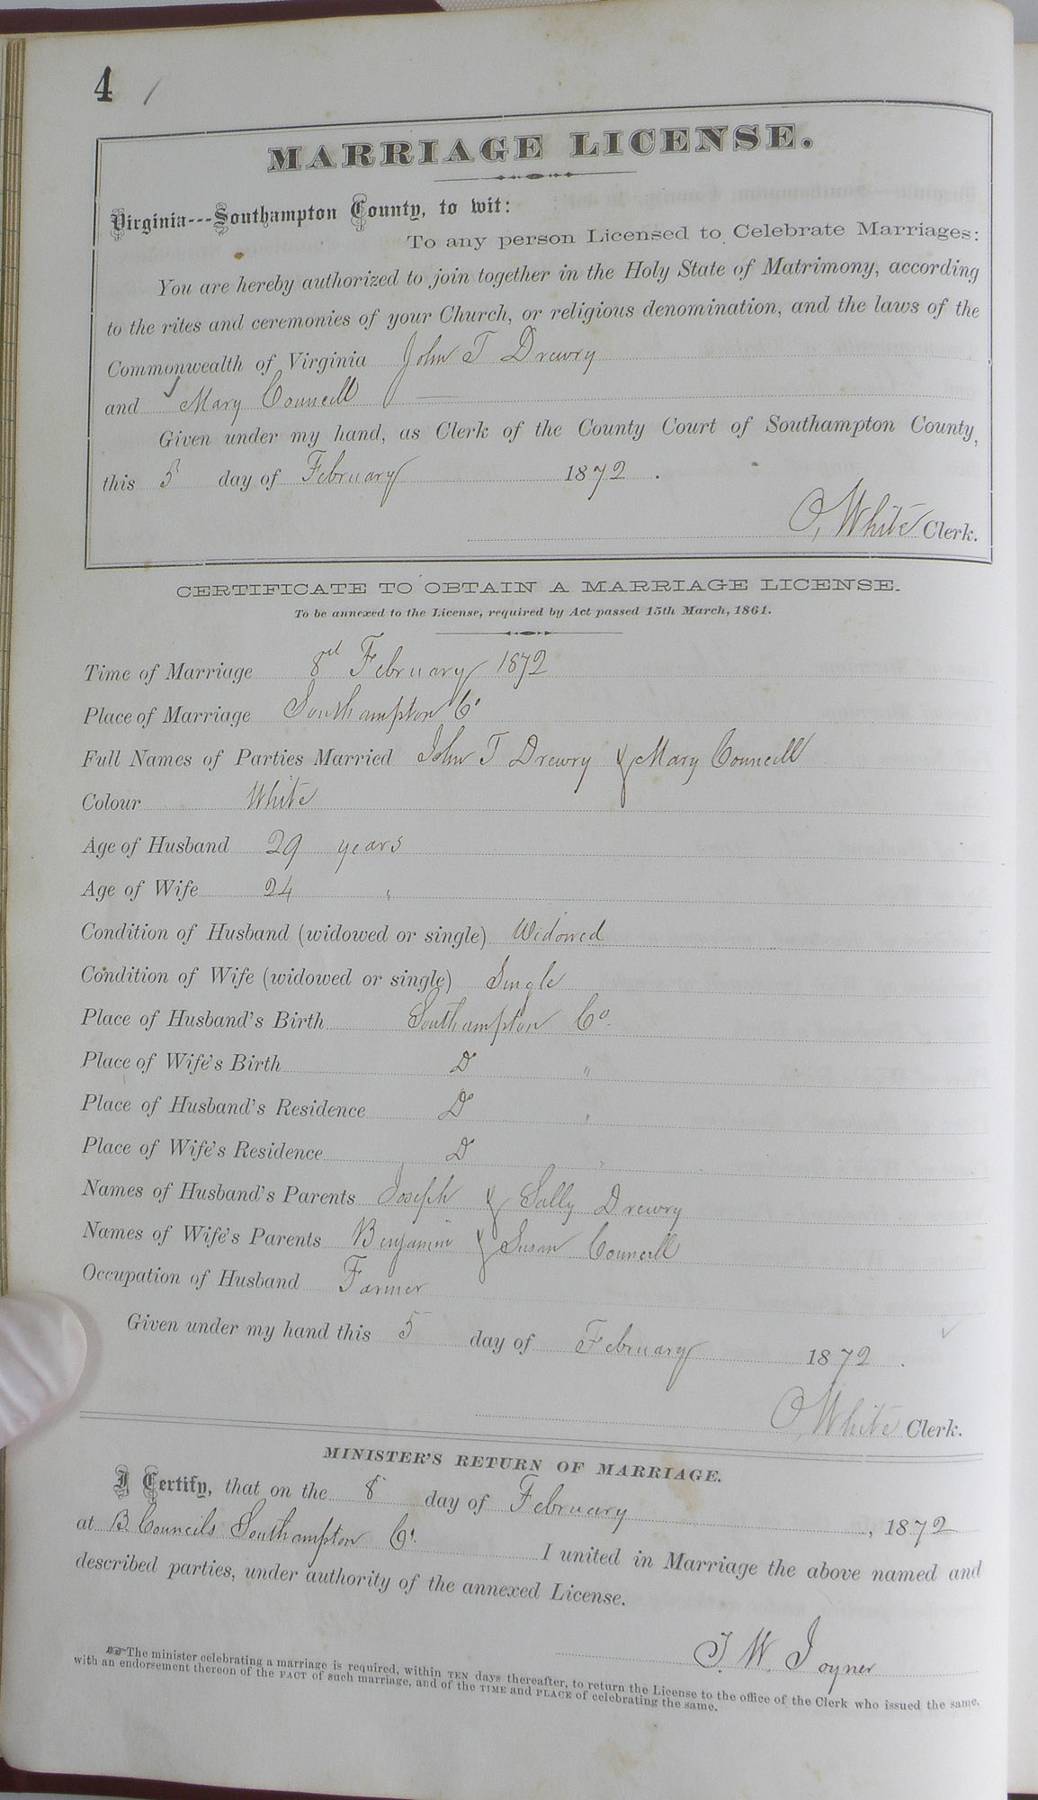 4
MARRIAGE LICENSE.
Virginia---Southampton County, to wit:
To any person Licensed to Celebrate Marriages:
You are hereby authorized to join together in the Holy State of Matrimony, according
to the rites and ceremonies of your Church, or religious denomination, and the laws of the
Commonwealth of Virginia John T Drewry
and Mary Councill
Given under my hand, as Clerk of the County Court of Southampton County,
this 5 day of February 1872.
O, White Clerk.
CERTIFICATE TO OBTAIN A MARRIAGE LICENSE.
To be annexed to the License, required by Act passed 15th March, 1861.
Time of Marriage 8th February 1872
Place of Marriage Southampton Co
Full Names of Parties Married John T Drewry & Mary Councill
Colour White
Age of Husband 29 years
Age of Wife 24 "
Condition of Husband (widowed or single) Widowed
Condition of Wife (widowed or single) Single
Place of Husband's Birth Southampton Co.
Place of Wife's Birth Do "
Place of Husband's Residence Do "
Place of Wife's Residence Do "
Names of Husband's Parents Joseph & Sally Drewry
Names of Wife's Parents Benjamin & Susan Councill
Occupation of Husband Farmer
Given under my hand this 5 day of February 1872.
O, White Clerk.
MINISTER'S RETURN OF MARRIAGE.
I Certify, that on the 8 day of February, 1872
at B. Councils Southampton Co. I united in Marriage the above named and
described parties, under authority of the annexed License.
J. W. Joyner
☞The minister celebrating a marriage is required, within TEN days thereafter, to return the License to the office of the Clerk who issued the same,
with an endorsement thereon of the FACT of such marriage, and of the TIME and PLACE of celebrating the same.